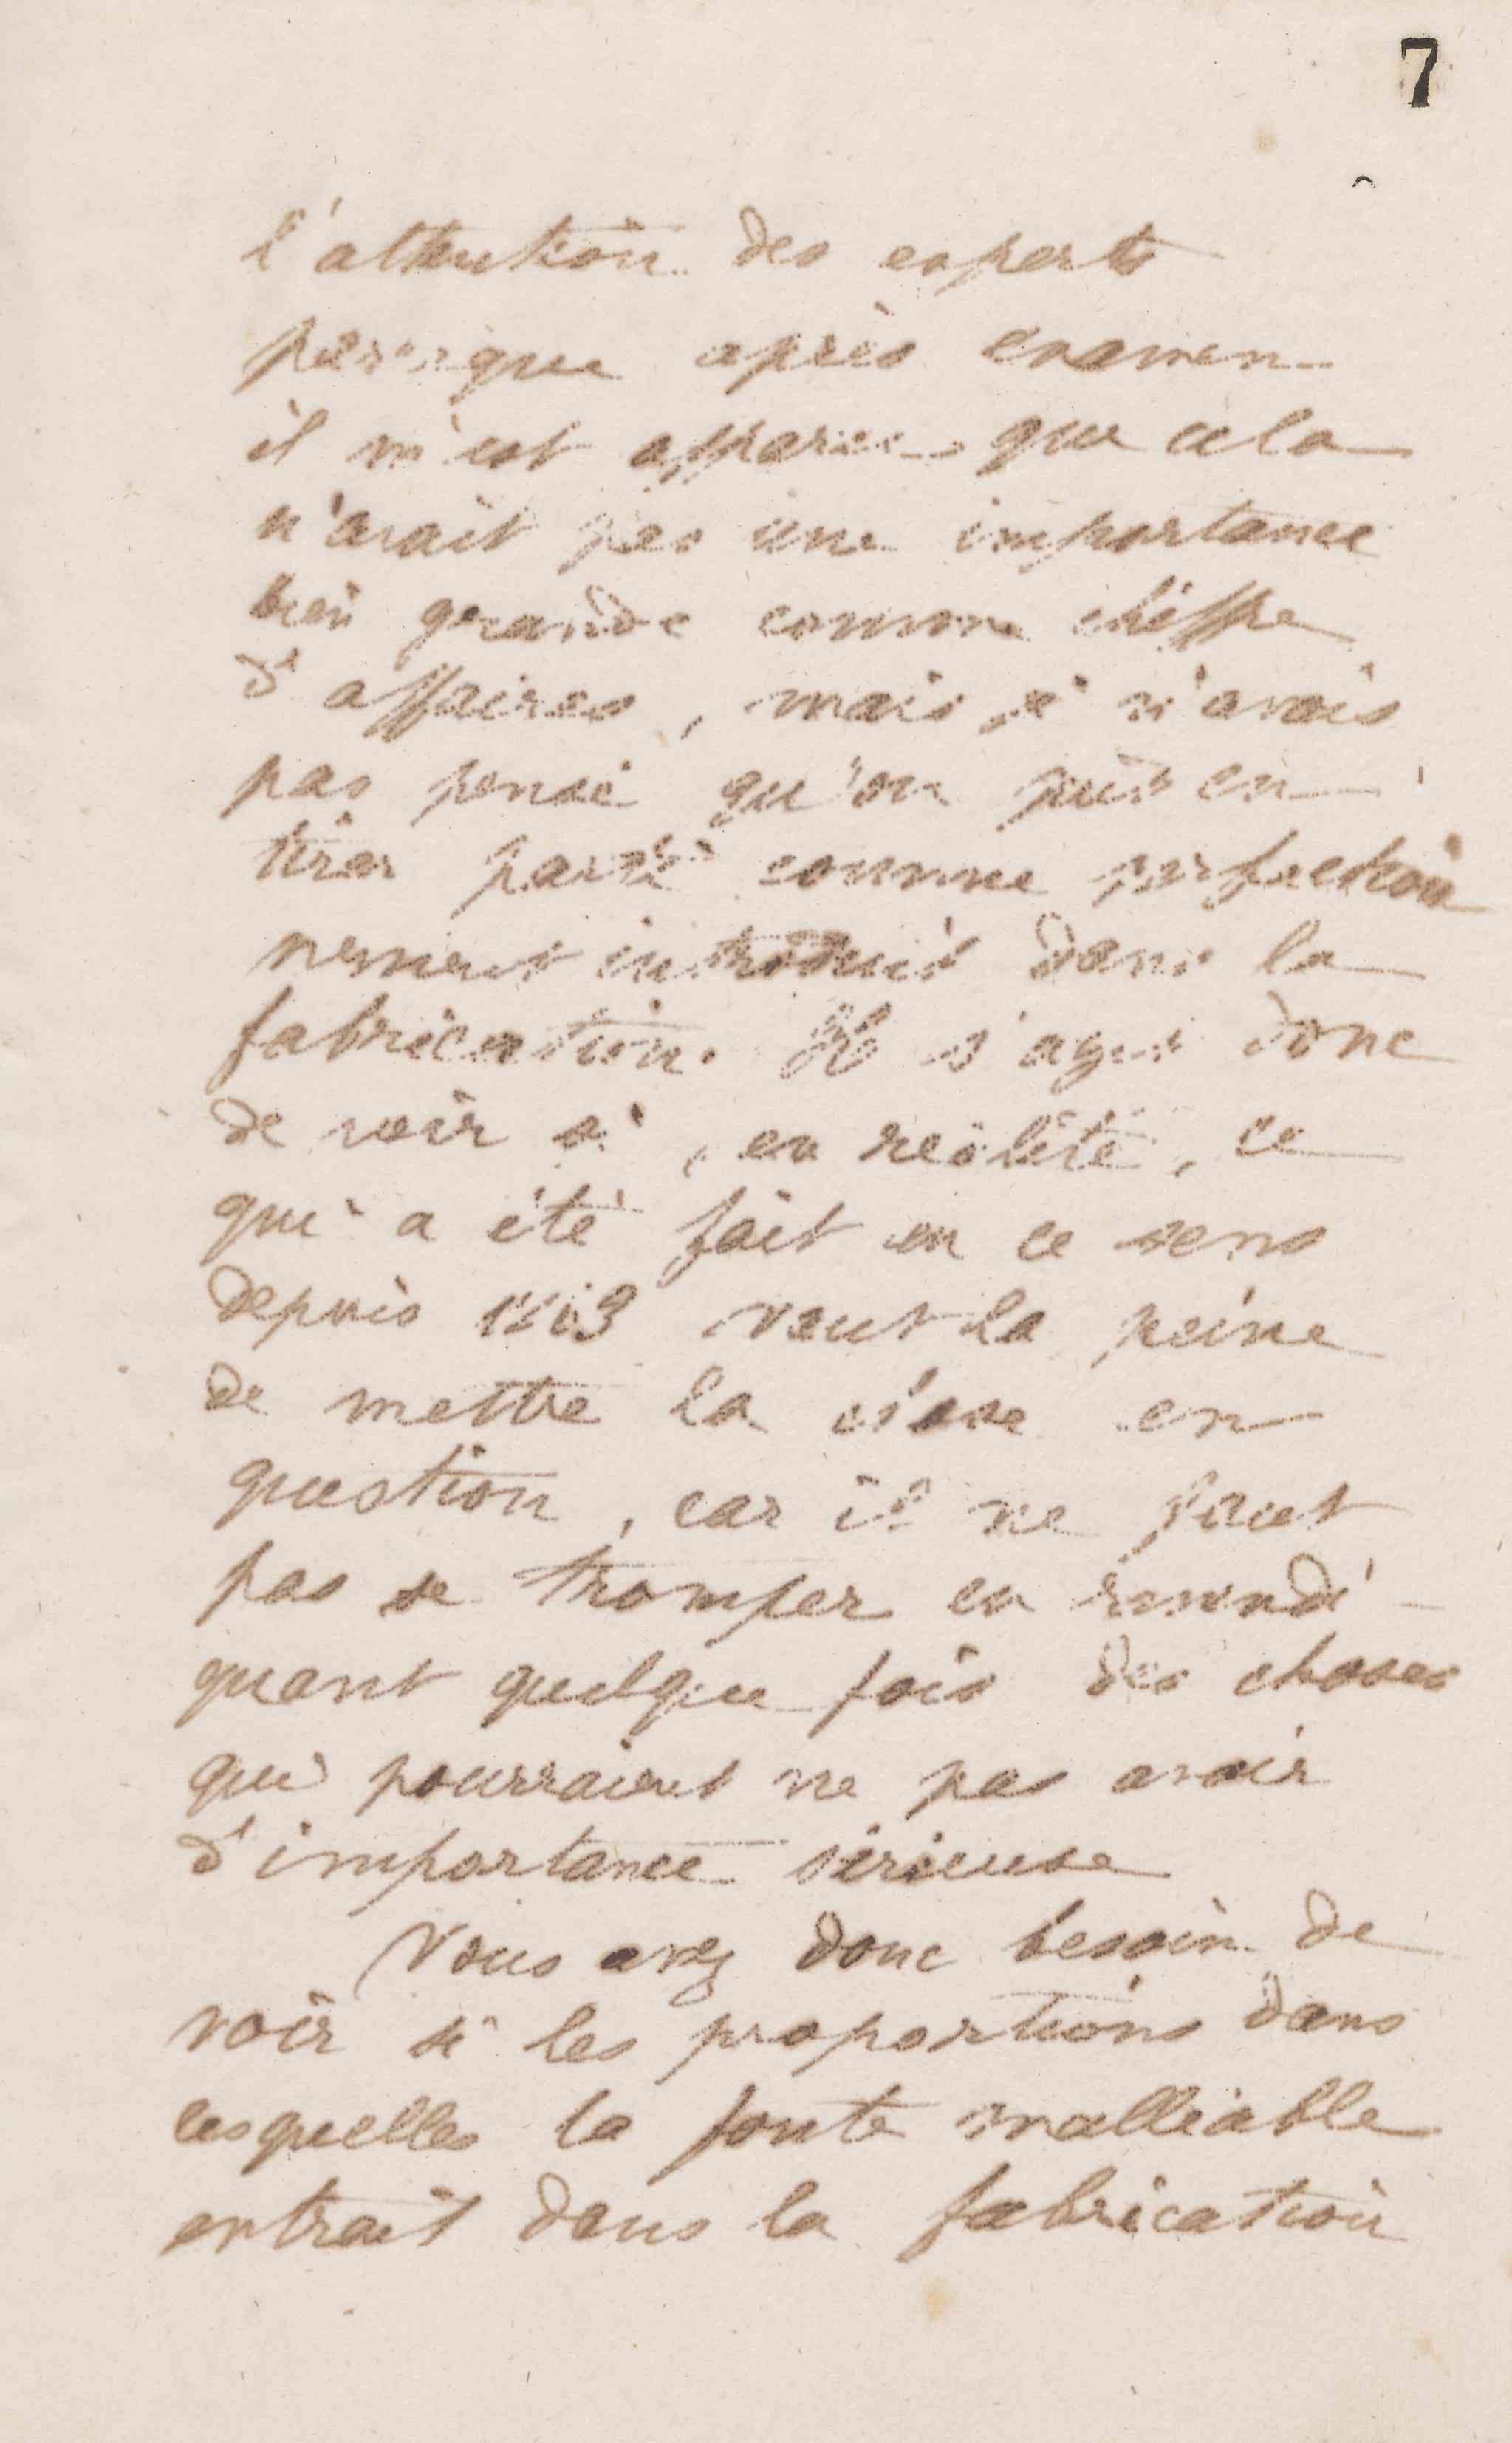 7
l'attention des experts
parce que après examen
il m'est apparu que cela
n'avait pas une importance
bien grande comme chiffre
d'affaires, mais je n'avais
pas pensé qu'on pût en
tirer parti comme perfection
nement introduit dans la
fabrication. Il s'agit donc
de voir si, en réalité, ce
qui a été fait en ce sens
depuis vaut la peine
de mettre la chose en
question, car il ne faut
pas se tromper en revendi-
quant quelque fois des choses
qui pourraient ne pas avoir
d'importance sérieuse
Vous avez donc besoin de
voir si les proportions dans
lesquelles la fonte malléable
entrait dans la fabrication